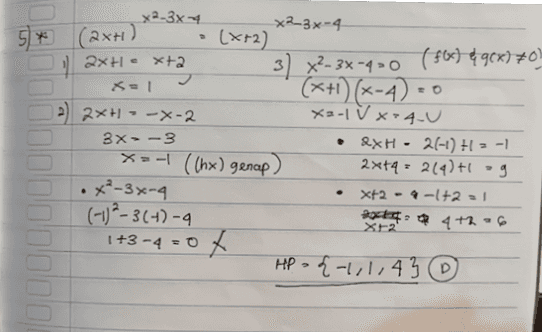 5) * (2x+1)^x²-3x-4 = (x+2)^x²-3x-4
1) 2x+1 = x+2
x = 1 ✓
2) 2x+1 = -x-2
3x = -3
x = -1 ((hx) genap)
• x²-3x-4
(-1)²-3(-1)-4
1+3-4 = 0 X
3) x²-3x-4=0 (f(x) & g(x) ≠0)
(x+1)(x-4) = 0
x=-1 V x=4
• 2x+1 = 2(-1)+1 = -1
2x+4 = 2(4)+1 = 9
• x+2 = -1+2 = 1
x+2 = 4+2 = 6
HP = {-1,1,4} (D)